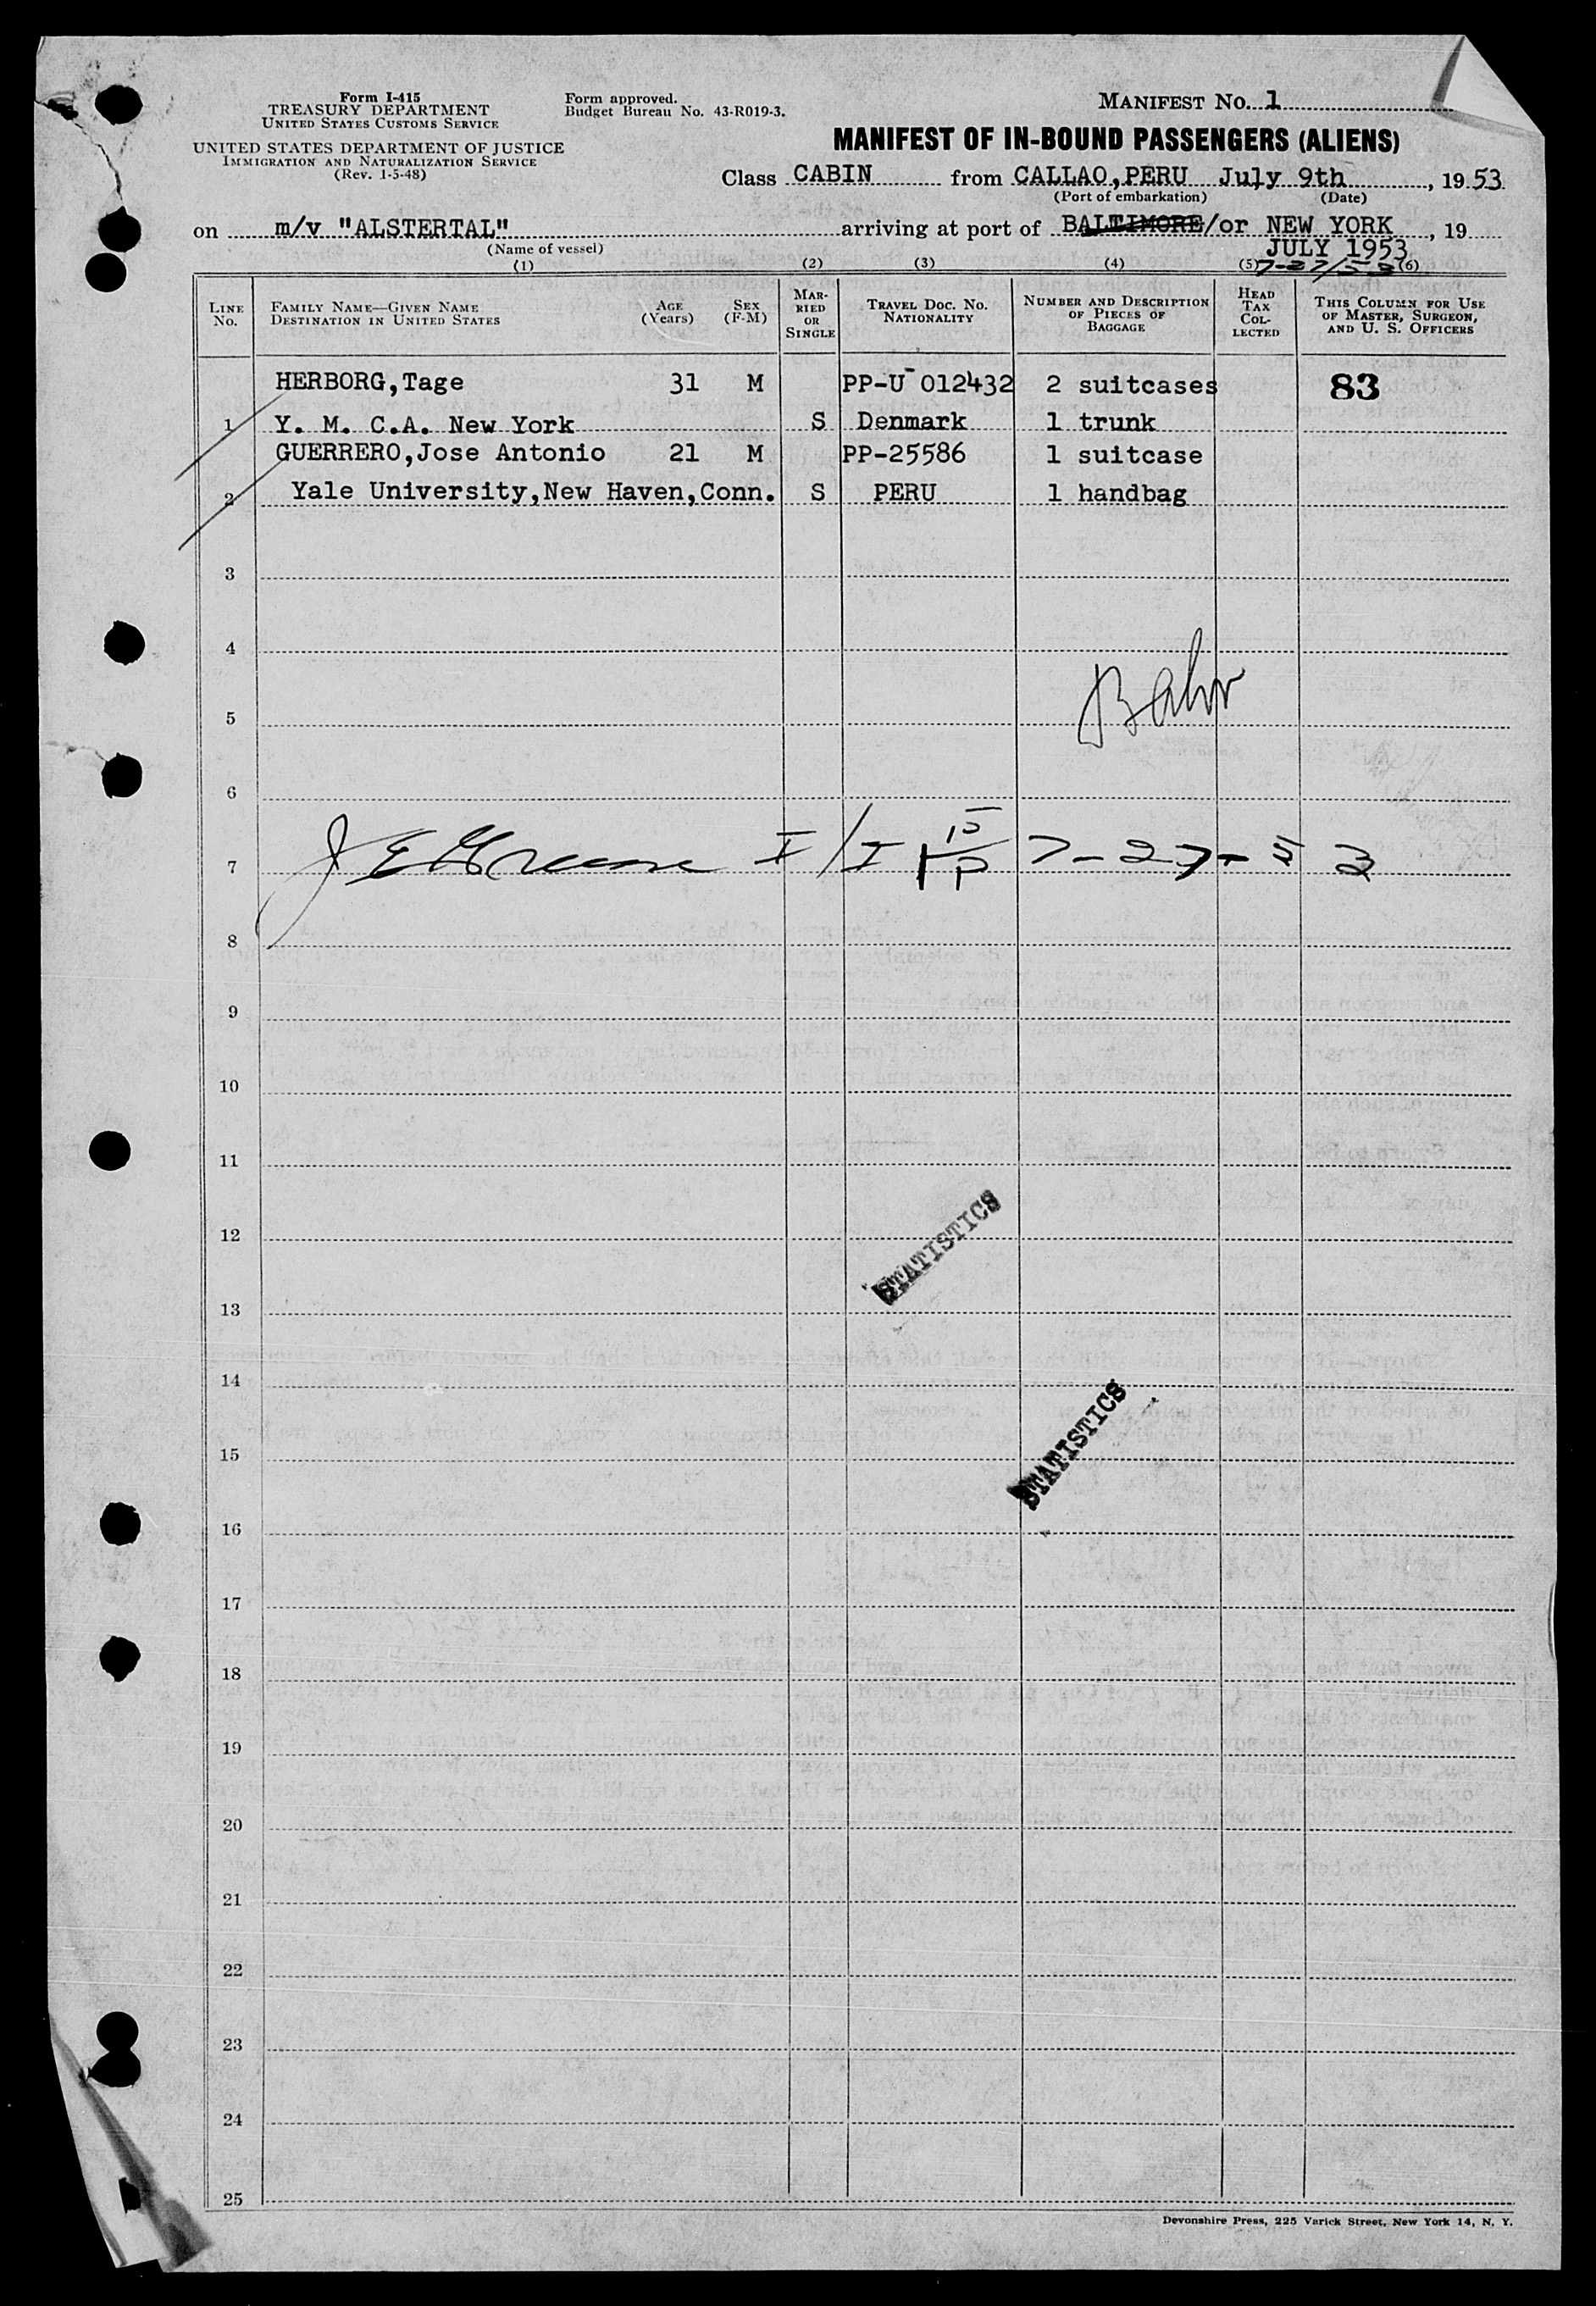 Form I-415
TREASURY DEPARTMENT
UNITED STATES CUSTOMS SERVICE
UNITED STATES DEPARTMENT OF JUSTICE
IMMIGRATION AND NATURALIZATION SERVICE
(Rev. 1-5-48)
Form approved.
Budget Bureau No. 43-R019-3.
MANIFEST No. 1
MANIFEST OF IN-BOUND PASSENGERS (ALIENS)
Class CABIN from CALLAO, PERU July 9th, 1953
(Port of embarkation) (Date)
on m/v "ALSTERTAL" arriving at port of BALTIMORE/or NEW YORK, 19
(Name of vessel) JULY 1953
7-27/53
(1) (2) (3) (4) (5) (6)
LINE No. FAMILY NAME—GIVEN NAME DESTINATION IN UNITED STATES AGE (Years) SEX (F-M) MARRIED OR SINGLE TRAVEL DOC. NO. NATIONALITY NUMBER AND DESCRIPTION OF PIECES OF BAGGAGE HEAD TAX COLLECTED THIS COLUMN FOR USE OF MASTER, SURGEON, AND U. S. OFFICERS
HERBORG, Tage 31 M PP-U-012432 2 suitcases 83
1 Y. M. C.A. New York S Denmark 1 trunk
GUERRERO, Jose Antonio 21 M PP-25586 1 suitcase
2 Yale University, New Haven, Conn. S PERU 1 handbag
3
4
5
6
7 7-27-53
8
9
10
11
12
STATISTICS
13
14
STATISTICS
15
16
17
18
19
20
21
22
23
24
25
Devonshire Press, 225 Varick Street, New York 14, N. Y.